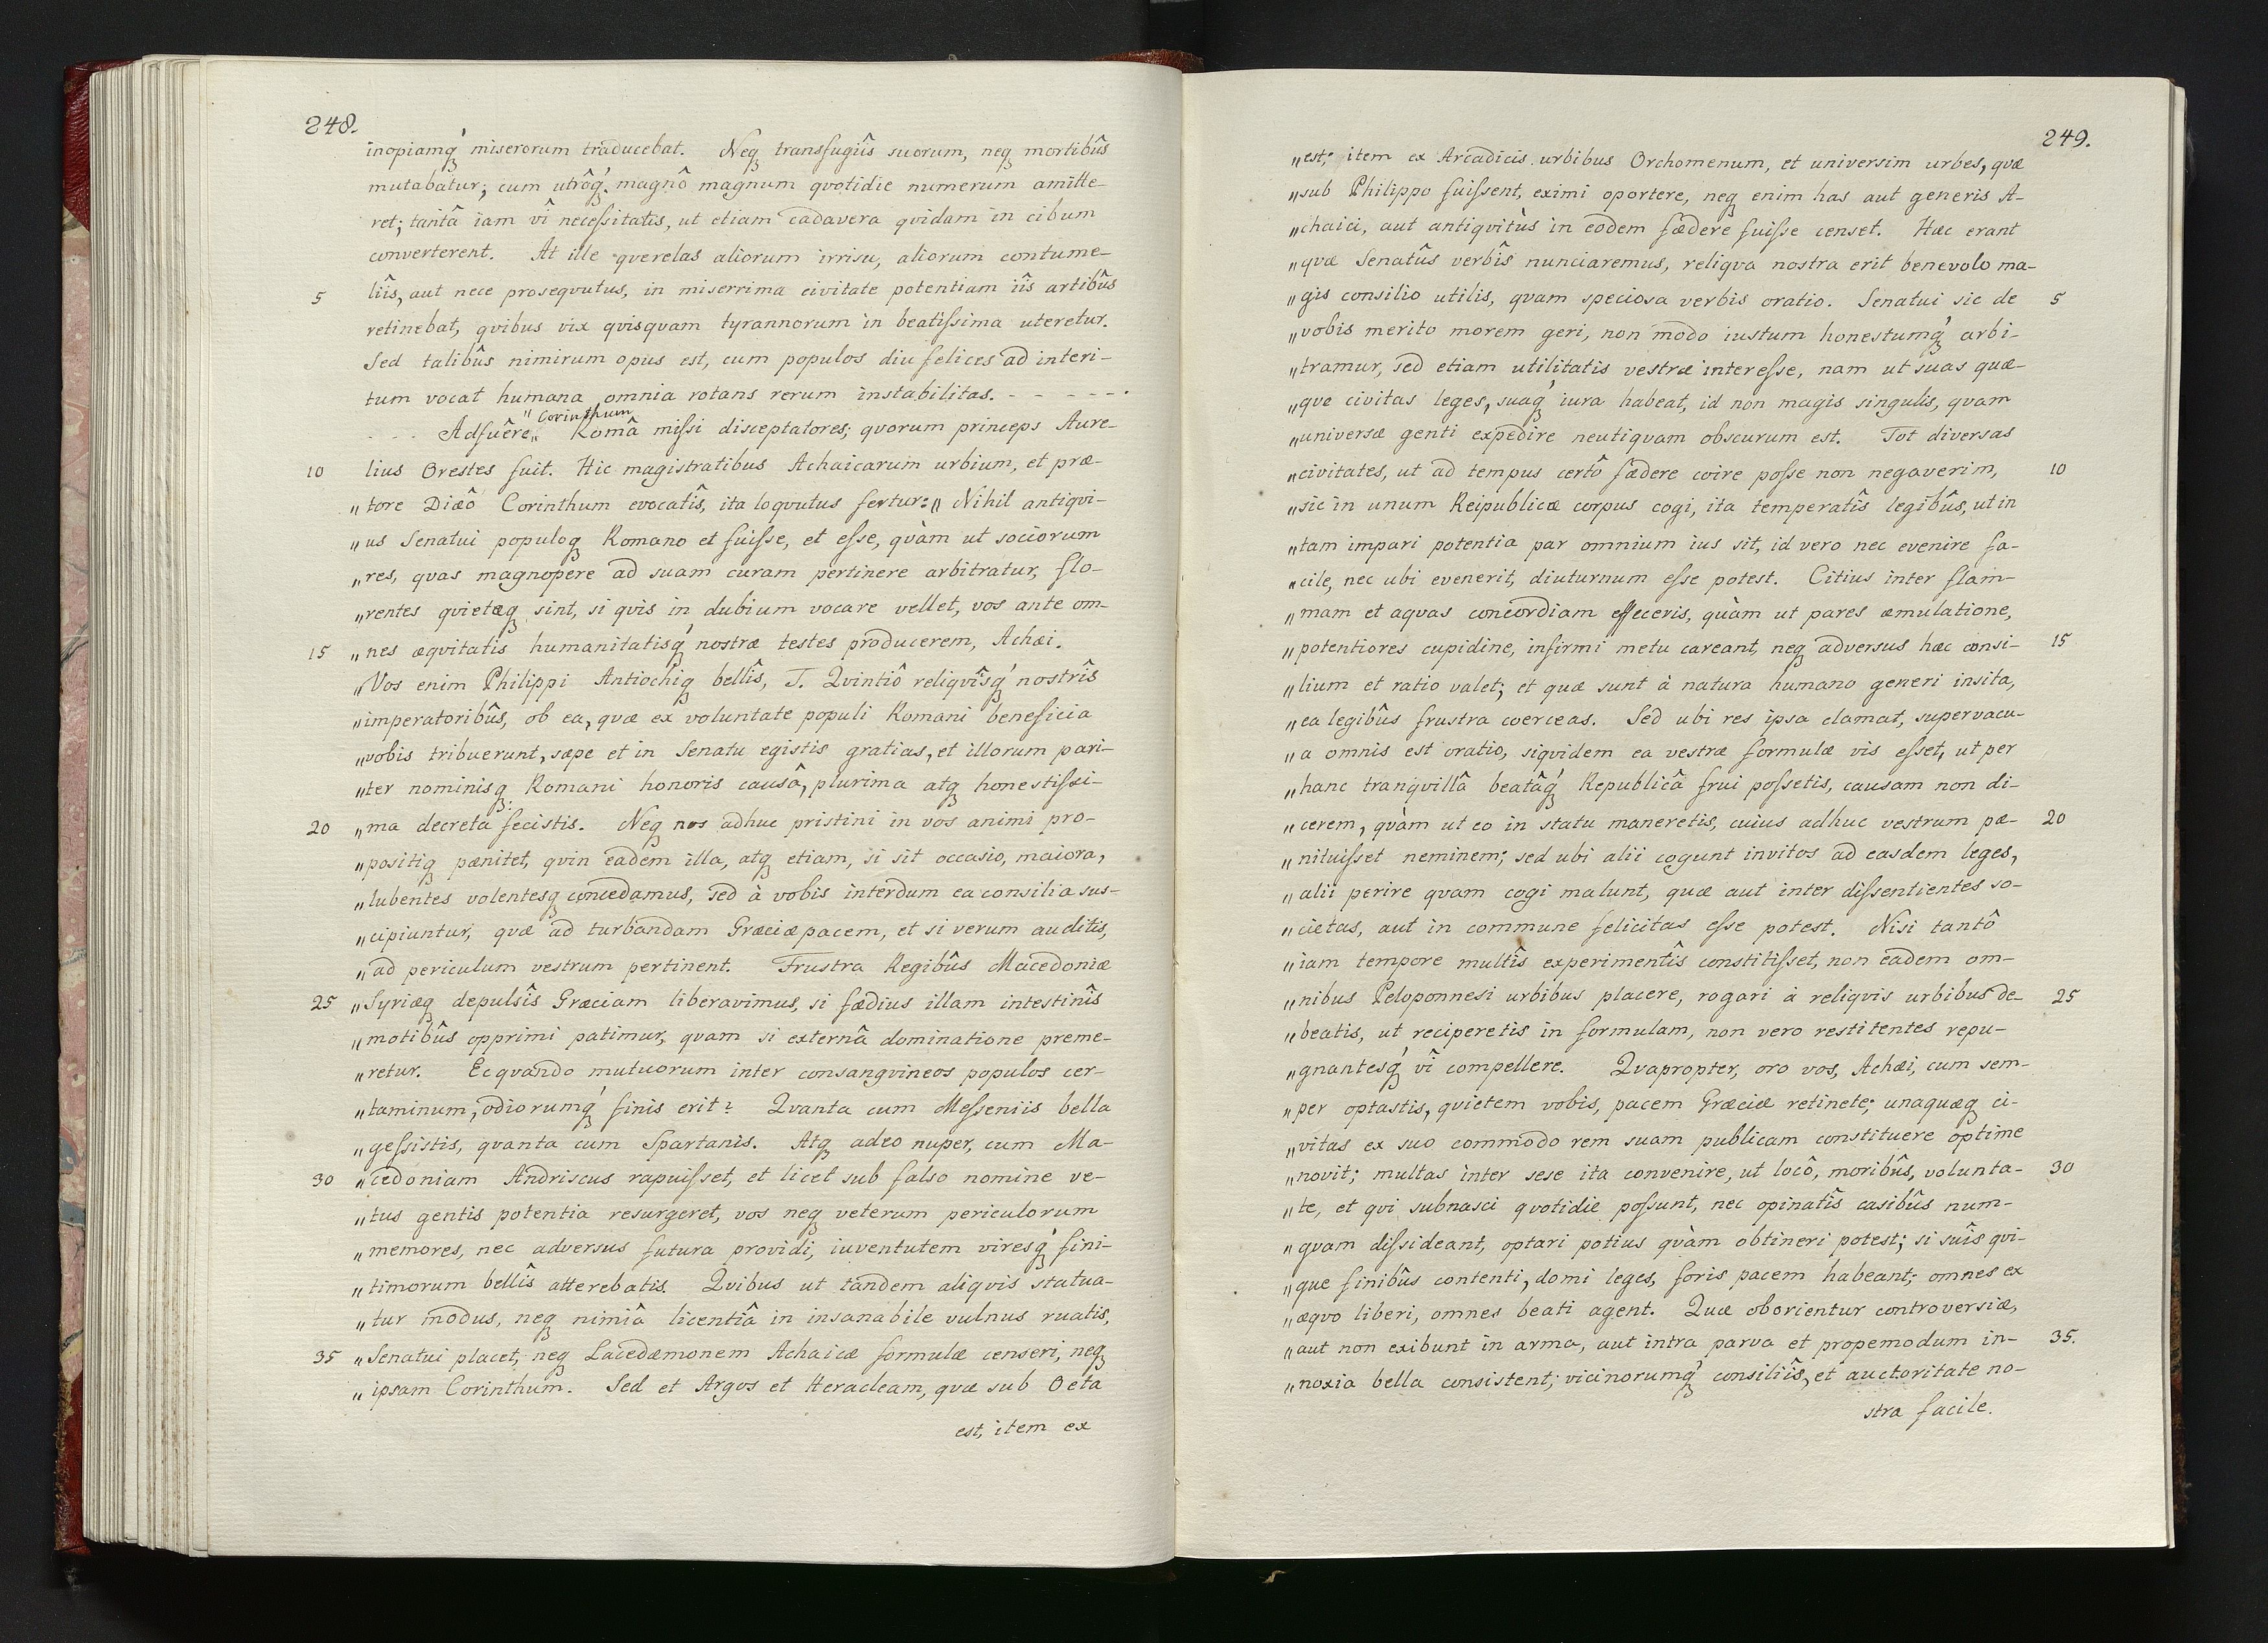 248.
inopiamq́ miserorum traducebat. Neq transfugiîs suorum, neq mortibûs
mutabatur; cum utrôq́ magnô magnum qvotidie numerum amitte-
ret; tantâ iam vî necessitatis, ut etiam cadavera qvidam in cibum
converterent. At ille qverelas aliorum irrisu, aliorum contume-
5 liîs, aut nece proseqvutus, in miserrima civitate potentiam iîs artibûs
retinebat, qvibus vix qvisqvam tyrannorum in beatissima uteretur.
Sed talibûs nimirum opus est, cum populos diu felices ad interi-
tum vocat humana omnia rotans rerum instabilitas. - - - - - -
" Corinthum
- - - Adfuêre„ Româ missi disceptatores; qvorum princeps Aure-
10 lius Orestes fuit. Hic magistratibus Achaicarum urbium, et præ-
„tore Diæô Corinthum evocatîs, ita loqvutus fertur: „ Nihil antiqvi-
„us Senatui populoq Romano et fuisse, et esse, qvàm ut sociorum
„res, qvas magnopere ad suam curam pertinere arbitratur, flo-
„rentes qvietæq sint, si qvis in dubium vocare vellet, vos ante om-
15 „nes æqvitatis humanitatisq́ nostræ testes producerem, Achæi.
„Vos enim Philippi Antiochiq bellîs, T. Qvintiô reliqvîsq́ nostrîs
„imperatoribûs, ob ea, qvæ ex voluntate populi Romani beneficia
„vobis tribuerunt, sæpe et in Senatu egistis gratias, et illorum pari-
„ter nominisq Romani honoris causâ, plurima atq honestissi-
20 „ma decreta fecistis. Neq nos adhuc pristini in vos animi pro-
„positiq pænitet, qvin eadem illa, atq etiam, si sit occasio, maiora,
„lubentes volentesq concedamus, sed à vobis interdum ea consilia sus-
„cipiuntur, qvæ ad turbandam Græciæ pacem, et si verum auditis,
„ad periculum vestrum pertinent. Frustra Regibûs Macedoniæ
25 „Syriæq depulsîs Græciam liberavimus, si fædius illam intestinîs
„motibûs opprimi patimur, qvam si externâ dominatione preme-
„retur. Ecqvando mutuorum inter consangvineos populos cer-
„taminum, odiorumq́ finis erit? Qvanta cum Messeniis bella
„gessistis, qvanta cum Spartanis. Atq adeo nuper, cum Ma-
30 „cedoniam Andriscus rapuisset, et licet sub falso nomine ve-
„tus gentis potentia resurgeret, vos neq veterum periculorum
„memores, nec adversus futura providi, iuventutem viresq́ fini-
„timorum bellîs atterebatis. Qvibus ut tandem aliqvis statua-
„tur modus, neq nimiâ licentiâ in insanabile vulnus ruatis,
35 „Senatui placet, neq Lacedæmonem Achaicæ formulæ censeri, neq
„ipsam Corinthum. Sed et Argos et Heracleam, qvæ sub Oeta
est, item ex
249.
„est; item ex Arcadicis urbibus Orchomenum, et universim urbes, qvæ
„sub Philippo fuissent, eximi oportere, neq enim has aut generis A-
„chaici, aut antiqvitùs in eodem fædere fuisse censet. Hæc erant
„qvæ Senatûs verbîs nunciaremus, reliqva nostra erit benevolo ma-
„gis consilio utilis, qvam speciosa verbis oratio. Senatui sic de 5
„vobis merito morem geri, non modo iustum honestumq́ arbi-
„tramur, sed etiam utilitatis vestræ interesse, nam ut suas quæ-
„qve civitas leges, suaq́ iura habeat, id non magis singulis, qvam
„universæ genti expedire neutiqvam obscurum est. Tot diversas
„civitates, ut ad tempus certô fædere coire posse non negaverim, 10
„sic in unum Reipublicæ corpus cogi, ita temperatîs legibûs, ut in
„tam impari potentia par omnium ius sit, id vero nec evenire fa-
„cile, nec ubi evenerit, diuturnum esse potest. Citius inter flam-
„mam et aqvas concordiam effeceris, qvàm ut pares æmulatione,
„potentiores cupidine, infirmi metu careant, neq adversus hæc consi- 15
„lium et ratio valet; et quæ sunt à natura humano generi insita,
„ea legibûs frustra coerceas. Sed ubi res ipsa clamat, supervacu-
„a omnis est oratio, siqvidem ea vestræ formulæ vis esset, ut per
„hanc tranqvillâ beatâq́ Republicâ frui possetis, causam non di-
„cerem, qvàm ut eo in statu maneretis, cuius adhuc vestrum pæ- 20
„nituisset neminem; sed ubi alii cogunt invitos ad easdem leges,
„alii perire qvam cogi malunt, quæ aut inter dissentientes so-
„cietas, aut in commune felicitas esse potest. Nisi tantô
„iam tempore multîs experimentîs constitisset, non eadem om-
„nibus Peloponnesi urbibus placere, rogari à reliqvis urbibus de- 25
„beatis, ut reciperetis in formulam, non vero restitentes repu-
„gnantesq́ vî compellere. Qvapropter, oro vos, Achæi, cum sem-
„per optastis, qvietem vobis, pacem Græciæ retinete; unaquæq ci-
„vitas ex suo commodo rem suam publicam constituere optime
„novit; multas inter sese ita convenire, ut locô, moribûs, volunta- 30
„te, et qvi subnasci qvotidie possunt, nec opinatîs casibûs num-
„qvam dissideant, optari potius qvàm obtineri potest; si suîs qvi-
„que finibûs contenti, domi leges, foris pacem habeant; omnes ex
„æqvo liberi, omnes beati agent. Quæ oborientur controversiæ,
„aut non exibunt in arma, aut intra parva et propemodum in- 35.
„noxia bella consistent; vicinorumq́ consiliîs, et auctoritate no-
stra facile.